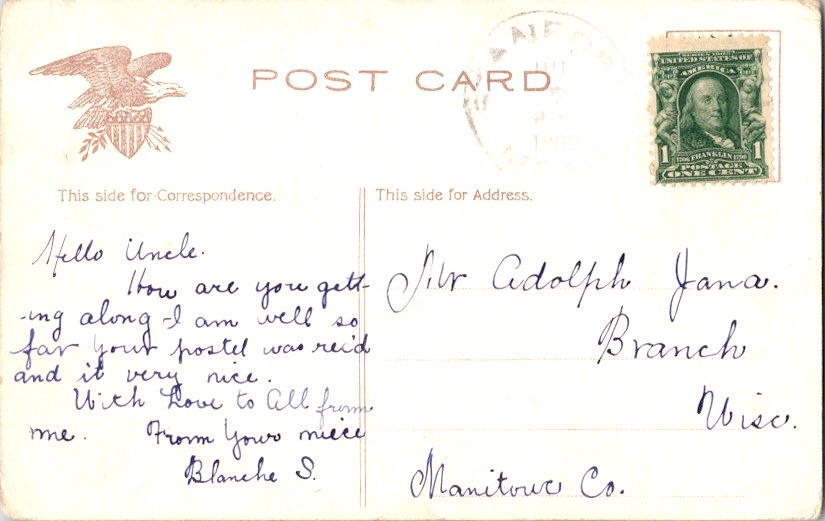 POST CARD
SERIES 1902
UNITED STATES OF
AMERICA
1706 FRANKLIN 1790
1 1
POSTAGE
ONE CENT
This side for Correspondence.
This side for Address.
Hello Uncle.
How are you gett-
-ing along - I am well so
far your postel was rec'd
and it very nice.
With Love to All from
me. From Your niece
Blanche S.
Mr Adolph Jana.
Branch
Wisc.
Manitowc Co.